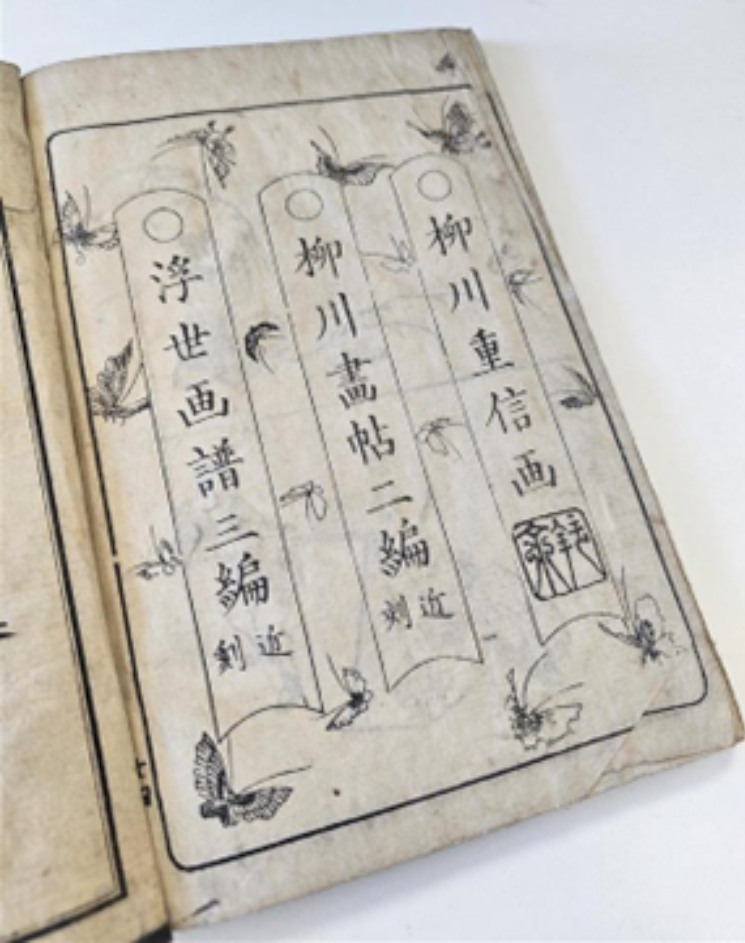 柳川重信画
柳川畵帖二編近刻
浮世画譜三編近刻